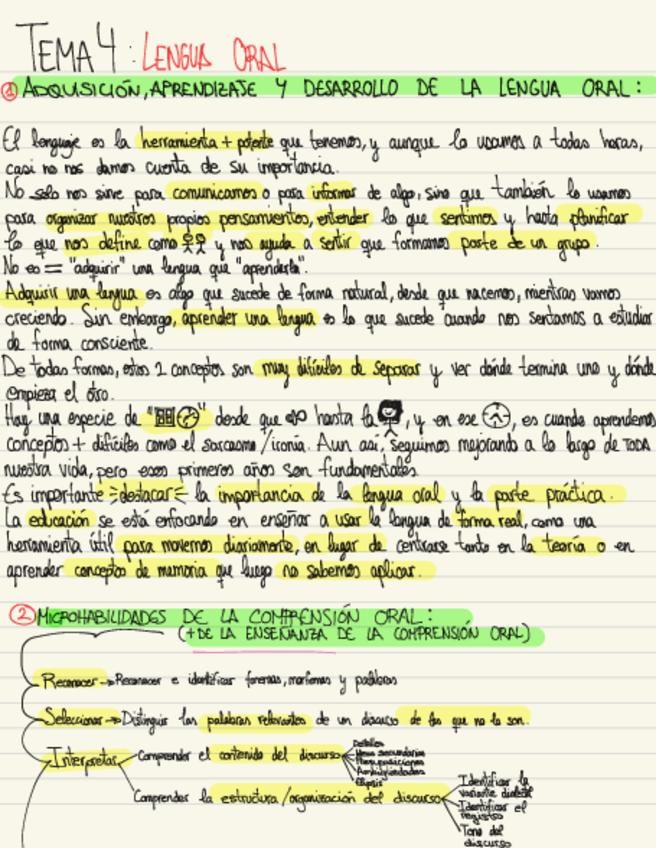 TEMA 4: LENGUA ORAL
① ADQUISICIÓN, APRENDIZAJE Y DESARROLLO DE LA LENGUA ORAL:
El lenguaje es la herramienta + potente que tenemos, y aunque lo usamos a todas horas,
casi no nos damos cuenta de su importancia.
No solo nos sirve para comunicarnos o para informar de algo, sino que también lo usamos
para organizar nuestros propios pensamientos, entender lo que sentimos y hasta planificar
lo que nos define como y nos ayuda a sentir que formamos parte de un grupo.
No es = "adquirir" una lengua que "aprenderla".
Adquirir una lengua es algo que sucede de forma natural, desde que nacemos, mientras vamos
creciendo. Sin embargo, aprender una lengua es lo que sucede cuando nos sentamos a estudiar
de forma consciente.
De todas formas, estos 2 conceptos son muy difíciles de separar y ver dónde termina uno y dónde
empieza el otro.
Hay una especie de " " desde que hasta la , y en ese , es cuando aprendemos
conceptos + difíciles como el sarcasmo/ironía. Aun así, seguimos mejorando a lo largo de TODA
nuestra vida, pero esos primeros años son fundamentales.
Es importante destacar la importancia de la lengua oral y la parte práctica.
La educación se está enfocando en enseñar a usar la lengua de forma real, como una
herramienta útil para movernos diariamente, en lugar de centrarse tanto en la teoría o en
aprender conceptos de memoria que luego no sabemos aplicar.
② MICROHABILIDADES DE LA COMPRENSIÓN ORAL:
(+ DE LA ENSEÑANZA DE LA COMPRENSIÓN ORAL)
Reconocer → Reconocer e identificar fonemas, morfemas y palabras
Seleccionar → Distinguir las palabras relevantes de un discurso de las que no lo son.
Interpretar
Comprender el contenido del discurso
Detalles
Ideas secundarias
Presuposiciones
Ambigüedades
Elipsis
Comprender la estructura/organización del discurso
Identificar la
variante dialectal
Identificar el
registro
Tono del
discurso